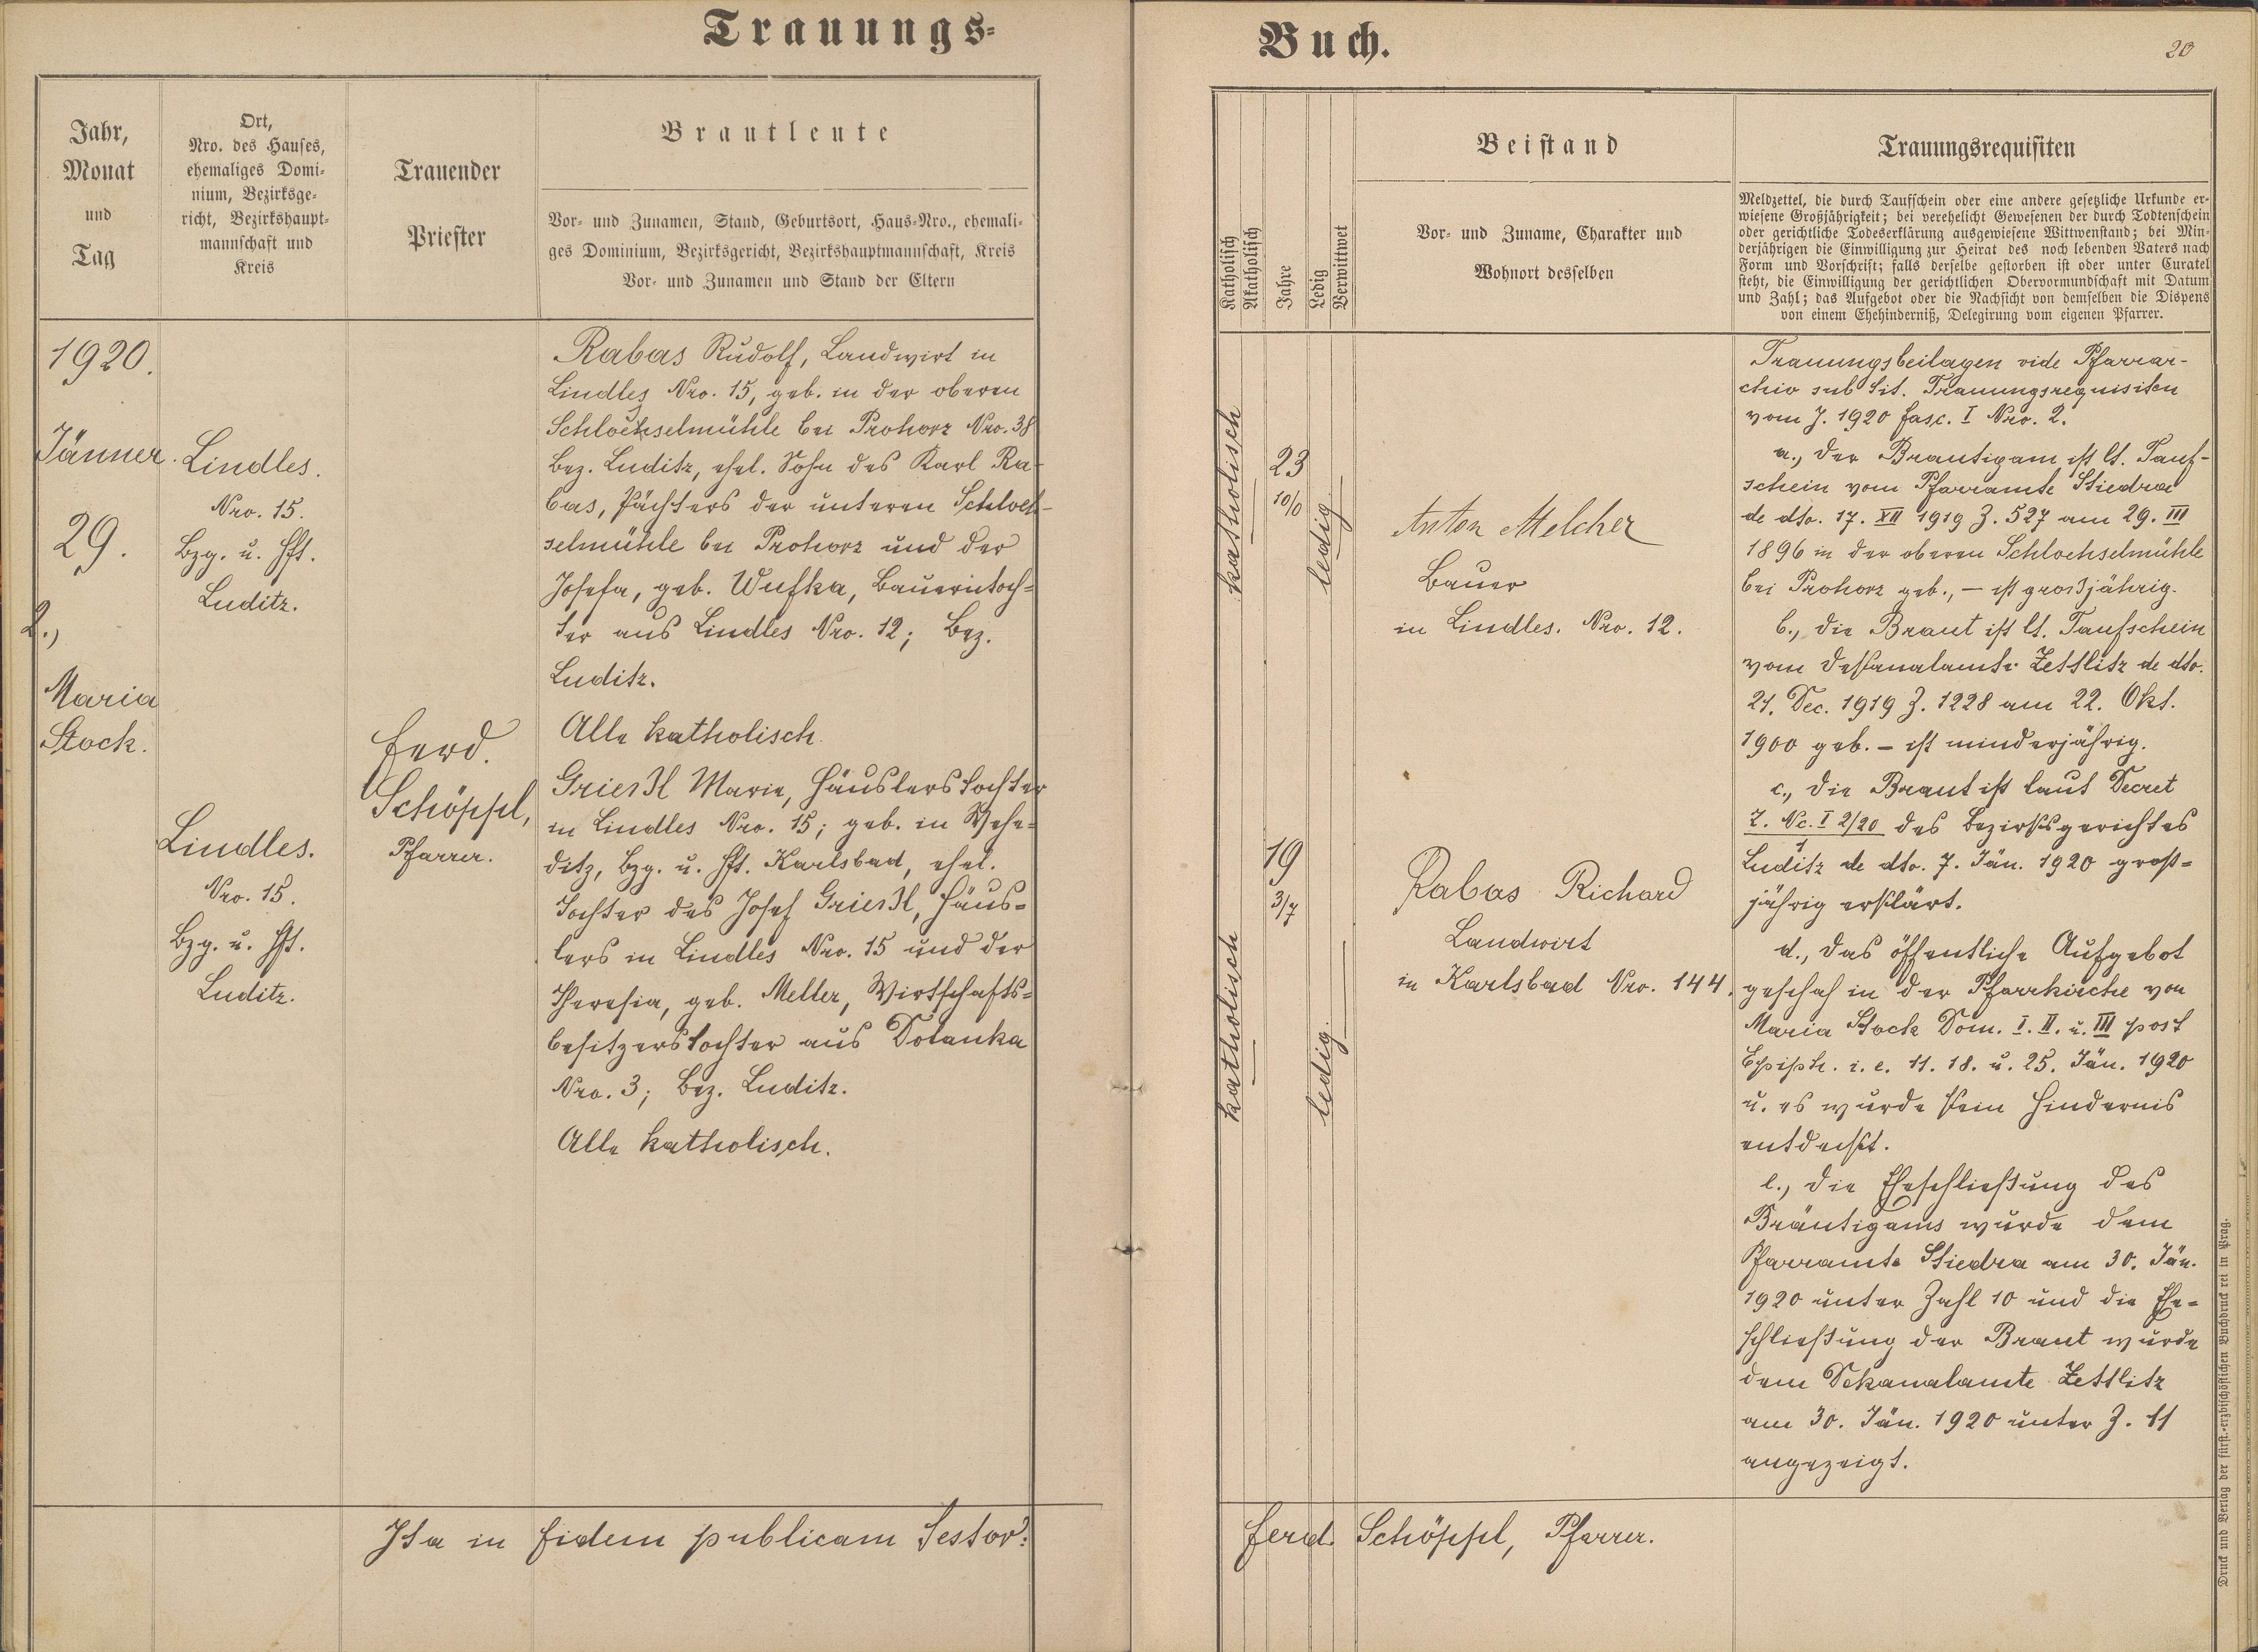 Trauungs-
Jahr,
Monat
und
Tag
Ort,
Nro. des Hauses,
ehemaliges Domi-
nium, Bezirksge-
richt, Bezirkshaupt-
mannschaft und
Kreis
Trauender
Priester
Brautleute
Vor- und Zunamen, Stand, Geburtsort, Haus-Nro., ehemali-
ges Dominium, Bezirksgericht, Bezirkshauptmannschaft, Kreis
Vor- und Zunamen und Stand der Eltern
1920.
Jänner.
29.
2.,
Maria
Stock.
Lindles.
Nro. 15.
Bzg. u. Hft.
Luditz.
Lindles.
Nro. 15.
Bzg. u. Hft.
Luditz.
Ferd.
Schöppl,
Pfarrer.
Rabas Rudolf, Landwirt in
Lindles Nro. 15, geb. in der oberen
Schlochselmühle bei Prohorz Nro. 38
Bez. Luditz, ehel. Sohn des Karl Ra-
bas, Pächters der unteren Schloch-
selmühle bei Prohorz und der
Josefa, geb. Wufka, Bauerntoch-
ter aus Lindles Nro. 12; Bez.
Luditz.
Alle katholisch.
Grießl Marie, Häuslerstochter
in Lindles Nro. 15; geb. in Wehe-
ditz, Bzg. u. Hft. Karlsbad, ehel.
Tochter des Josef Grießl, Häus-
lers in Lindles Nro. 15 und der
Theresia, geb. Meller, Wirtschafts-
besitzerstochter aus Dolanka
Nro. 3; Bez. Luditz.
Alle katholisch.
Ita in fidem publicam testor:
Buch.
20
Katholisch
Akatholisch
Jahre
Ledig
Verwittwet
Beistand
Vor- und Zuname, Charakter und
Wohnort desselben
Trauungsrequisiten
Meldzettel, die durch Taufschein oder eine andere gesetzliche Urkunde er-
wiesene Großjährigkeit; bei verehelicht Gewesenen der durch Todtenschein
oder gerichtliche Todeserklärung ausgewiesene Wittwenstand; bei Min-
derjährigen die Einwilligung zur Heirat des noch lebenden Vaters nach
Form und Vorschrift; falls derselbe gestorben ist oder unter Curatel
steht, die Einwilligung der gerichtlichen Obervormundschaft mit Datum
und Zahl; das Aufgebot oder die Nachsicht von demselben die Dispens
von einem Ehehinderniß, Delegirung vom eigenen Pfarrer.
katholisch
23
10/0
ledig
Anton Melcher
Bauer
in Lindles. Nro. 12.
katholisch
19
3/7
ledig
Rabas Richard
Landwirt
in Karlsbad Nro. 144.
Trauungsbeilagen vide Pfarrar-
chiv sub tit. Trauungsrequisiten
vom J. 1920 fasc. I Nro. 2.
a., Der Brautigam ist lt. Tauf-
schein vom Pfarramte Stiedra
de dto. 17. XII 1919 Z. 527 am 29. III
1896 in der oberen Schlochselmühle
bei Prohorz geb., – ist großjährig.
b., die Braut ist lt. Taufschein
vom Dekanalamte Zettlitz de dto.
21. Dec. 1919 Z. 1228 am 22. Okt.
1900 geb. – ist minderjährig.
c., die Braut ist laut Decret
Z. Nc. I 2/20 des Bezirksgerichtes
1
Luditz de dto. 7. Jän. 1920 groß-
jährig erklärt.
d., das öffentliche Aufgebot
geschah in der Pfarrkirche von
Maria Stock Dom. I. II. u. III post
Epiph. i. e. 11. 18. u. 25. Jän. 1920
u. es wurde kein Hindernis
entdeckt.
e., die Eheschließung des
Bräutigams wurde dem
Pfarramte Stiedra am 30. Jän.
1920 unter Zahl 10 und die Ehe-
schließung der Braut wurde
dem Dekanalamte Zettlitz
am 30. Jän. 1920 unter Z. 11
angezeigt.
Ferd. Schöppl, Pfarrer.
Druck und Verlag der fürst-erzbischöflichen Buchdruckerei in Prag.